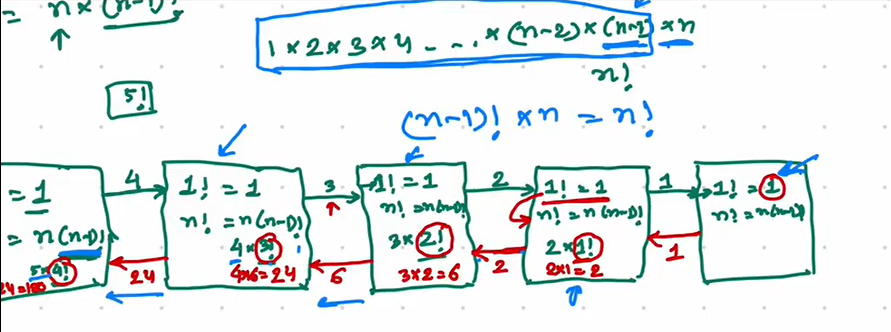 = n × (n-1)!
1 × 2 × 3 × 4 - - .. × (n-2) × (n-1) × n
n!
5!
(n-1)! × n = n!
= 1
= n(n-1)!
5×4!
4
24
1! = 1
n! = n(n-1)!
4×3!
4×6=24
3
6
1! = 1
n! = n(n-1)!
3×2!
3×2=6
2
2
1! = 1
n! = n(n-1)!
2×1!
2×1=2
1
1
1! = 1
n! = n(n-1)!